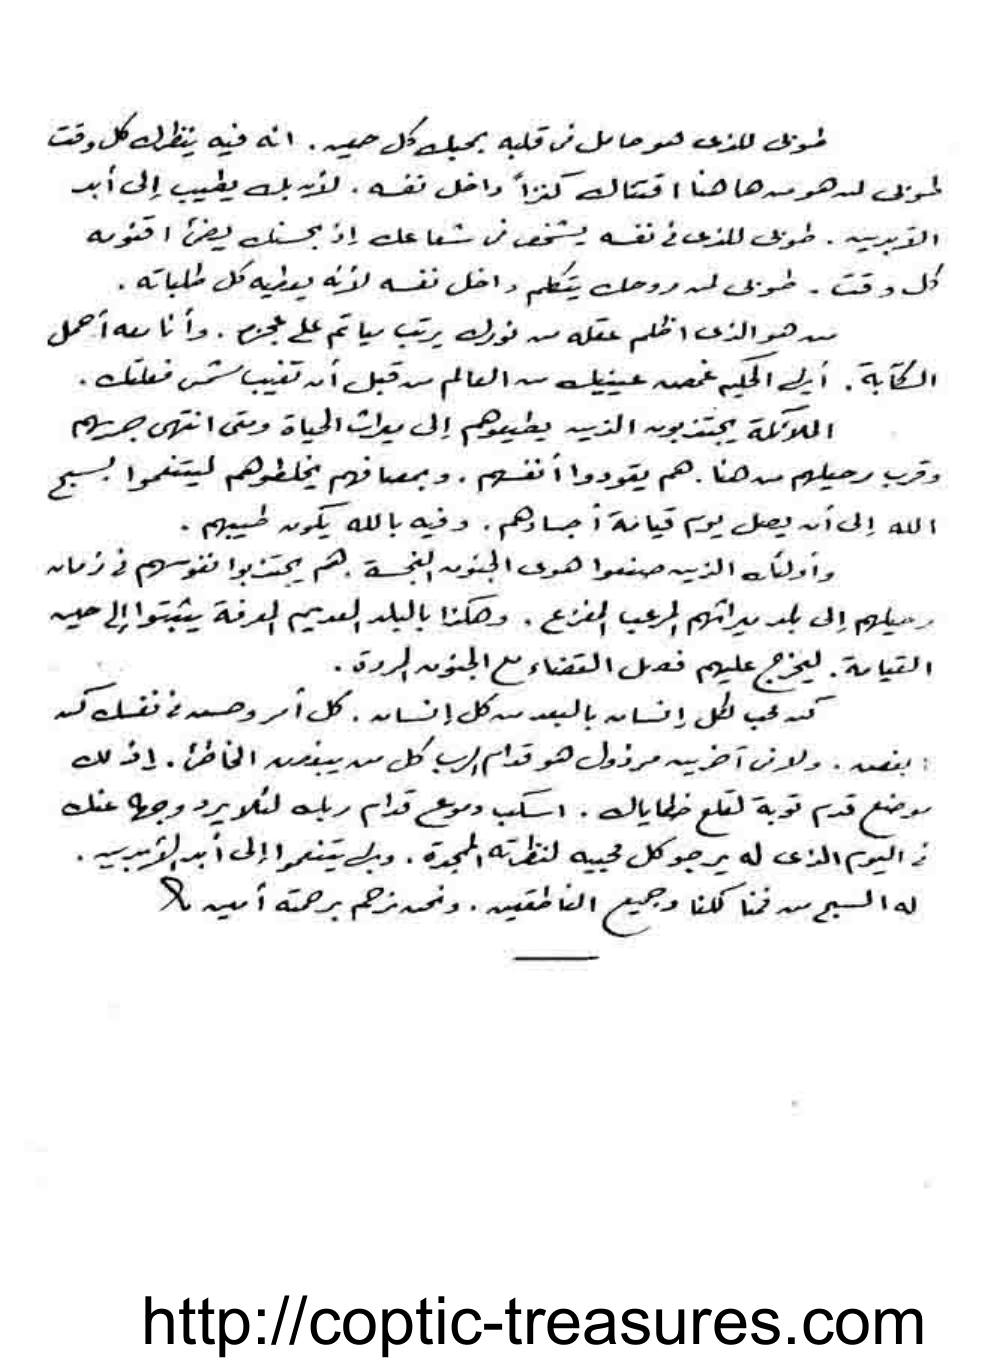 طوبى للذى هو حامل فى قلبه بحبك كل حين . انه فيه ينظرك كل وقت
طوبى لمن هو من هاهنا اقتناك كنزاً داخل نفسه . لأن بك يطيب إلى أبد
الآبدين . طوبى للذى فى نفسه يشخص فى شعاعك إذ بحسنك يضئ اقنومه
كل وقت . طوبى لمن روحك يتكلم داخل نفسه لأنه يعطيه كل طلباته .
من هو الذى اظلم عقله من نورك يرتب مياتم على عجزه . وأنا معه أحمل
الكآبة . أيها الحكيم غمض عينيك من العالم من قبل أن تغيب شمس فعلتك .
الملائكة يجتذبون الذين يطيعوهم إلى ميراث الحياة ومتى انتهى جريهم
وقرب رحيلهم من هنا . هم يقودوا أنفسهم . وبمصافهم يخلطوهم ليتنعموا بسبح
الله إلى أن يصل يوم قيامة أجسادهم . وفيه بالله يكون طيبهم .
وأولئك الذين صنعوا هوى الجنون النجسة . هم يجتذبوا نفوسهم فى زمان
رحيلهم إلى بلد ميراثهم المرعب المفزع . وهكذا بالبلد العديم المعرفة يثبتوا إلى حين
القيامة . ليخرج عليهم فصل القضاء مع الجنون المردة .
كن محب لكل إنسان بالبعد من كل إنسان . كل أمر وحسن فى نفسك كن
بغض . ولا فى آخرين مرذول هو قدام الرب كل من يبغض الخاطئ . إذ لك
موضع قدم توبة لقلع خطاياك . اسكب دموع قدام ربك لئلا يرد وجهه عنك
فى اليوم الذى له يرجو كل محبيه لنظرته الممجدة . وبه يتنعموا إلى أبد الآبدين .
له السبح من فمنا كلنا وجميع الناطقين . ونحن نرحم برحمته أمين
http://coptic-treasures.com